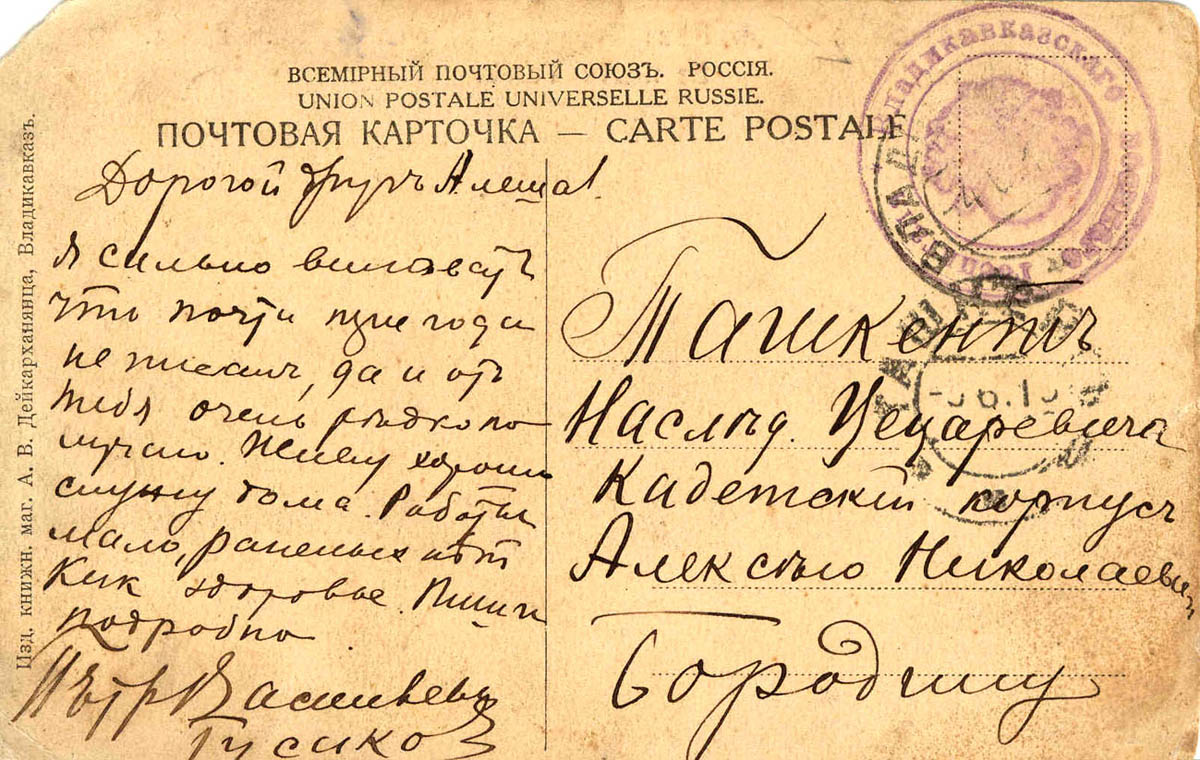 ВСЕМІРНЫЙ ПОЧТОВЫЙ СОЮЗЪ. РОССІЯ.
UNION POSTALE UNIVERSELLE RUSSIE.
ПОЧТОВАЯ КАРТОЧКА — CARTE POSTALE
Изд. книжн. маг. А. В. Дейкарханянца, Владикавказъ.
Дорогой другъ Алеша!
Я сильно виноватъ
что почти
не писалъ, да и отъ
тебя очень рѣдко по
лучаю. Живу хорошо
служу дома. Работы
мало, раненыхъ нѣт
Как здоровье. Пиши
подробно
Пѣтр Васильевъ
Гусиков
Ташкентъ
Наслѣд. Цецаревича
Кадетскій корпусъ
Алексѣю Николаевичу
Бородину
Владикавказскаго
ВЛАД